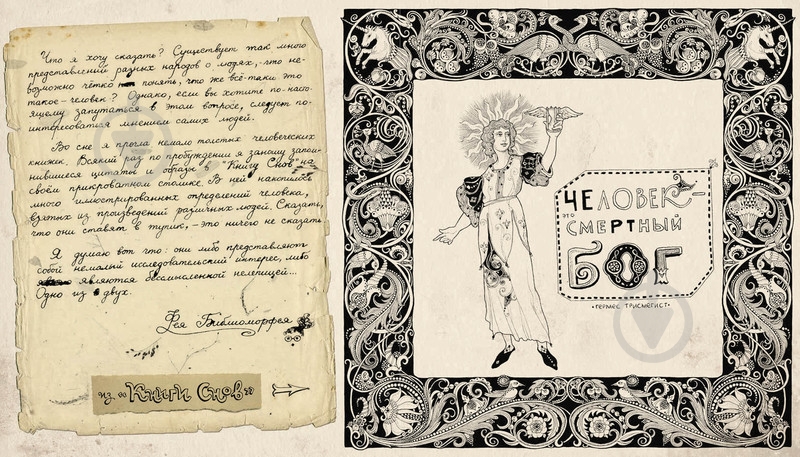 Что я хочу сказать? Существует так много
представлений разных народов о людях, что не-
возможно чётко понять, что же всё-таки это
такое - человек? Однако, если вы хотите по-насто-
ящему запутаться в этом вопросе, следует по-
интересоваться мнением самих людей.
Во сне я прочла немало толстых человеческих
книжек. Всякий раз по пробуждении я заношу запом-
нившиеся цитаты и образы в "Книгу Снов" на
своём прикроватном столике. В ней накопилось
много иллюстрированных определений человека,
взятых из произведений различных людей. Сказать,
что они ставят в тупик, - это ничего не сказать.
Я думаю вот что: они либо представляют
собой немалый исследовательский интерес, либо
являются бессмысленной нелепицей...
Одно из двух.
Фея Библиоморфея
из "Книги Снов"
ЧЕЛОВЕК-
это
СМЕРТНЫЙ
БОГ
• ГЕРМЕС ТРИСМЕГИСТ •